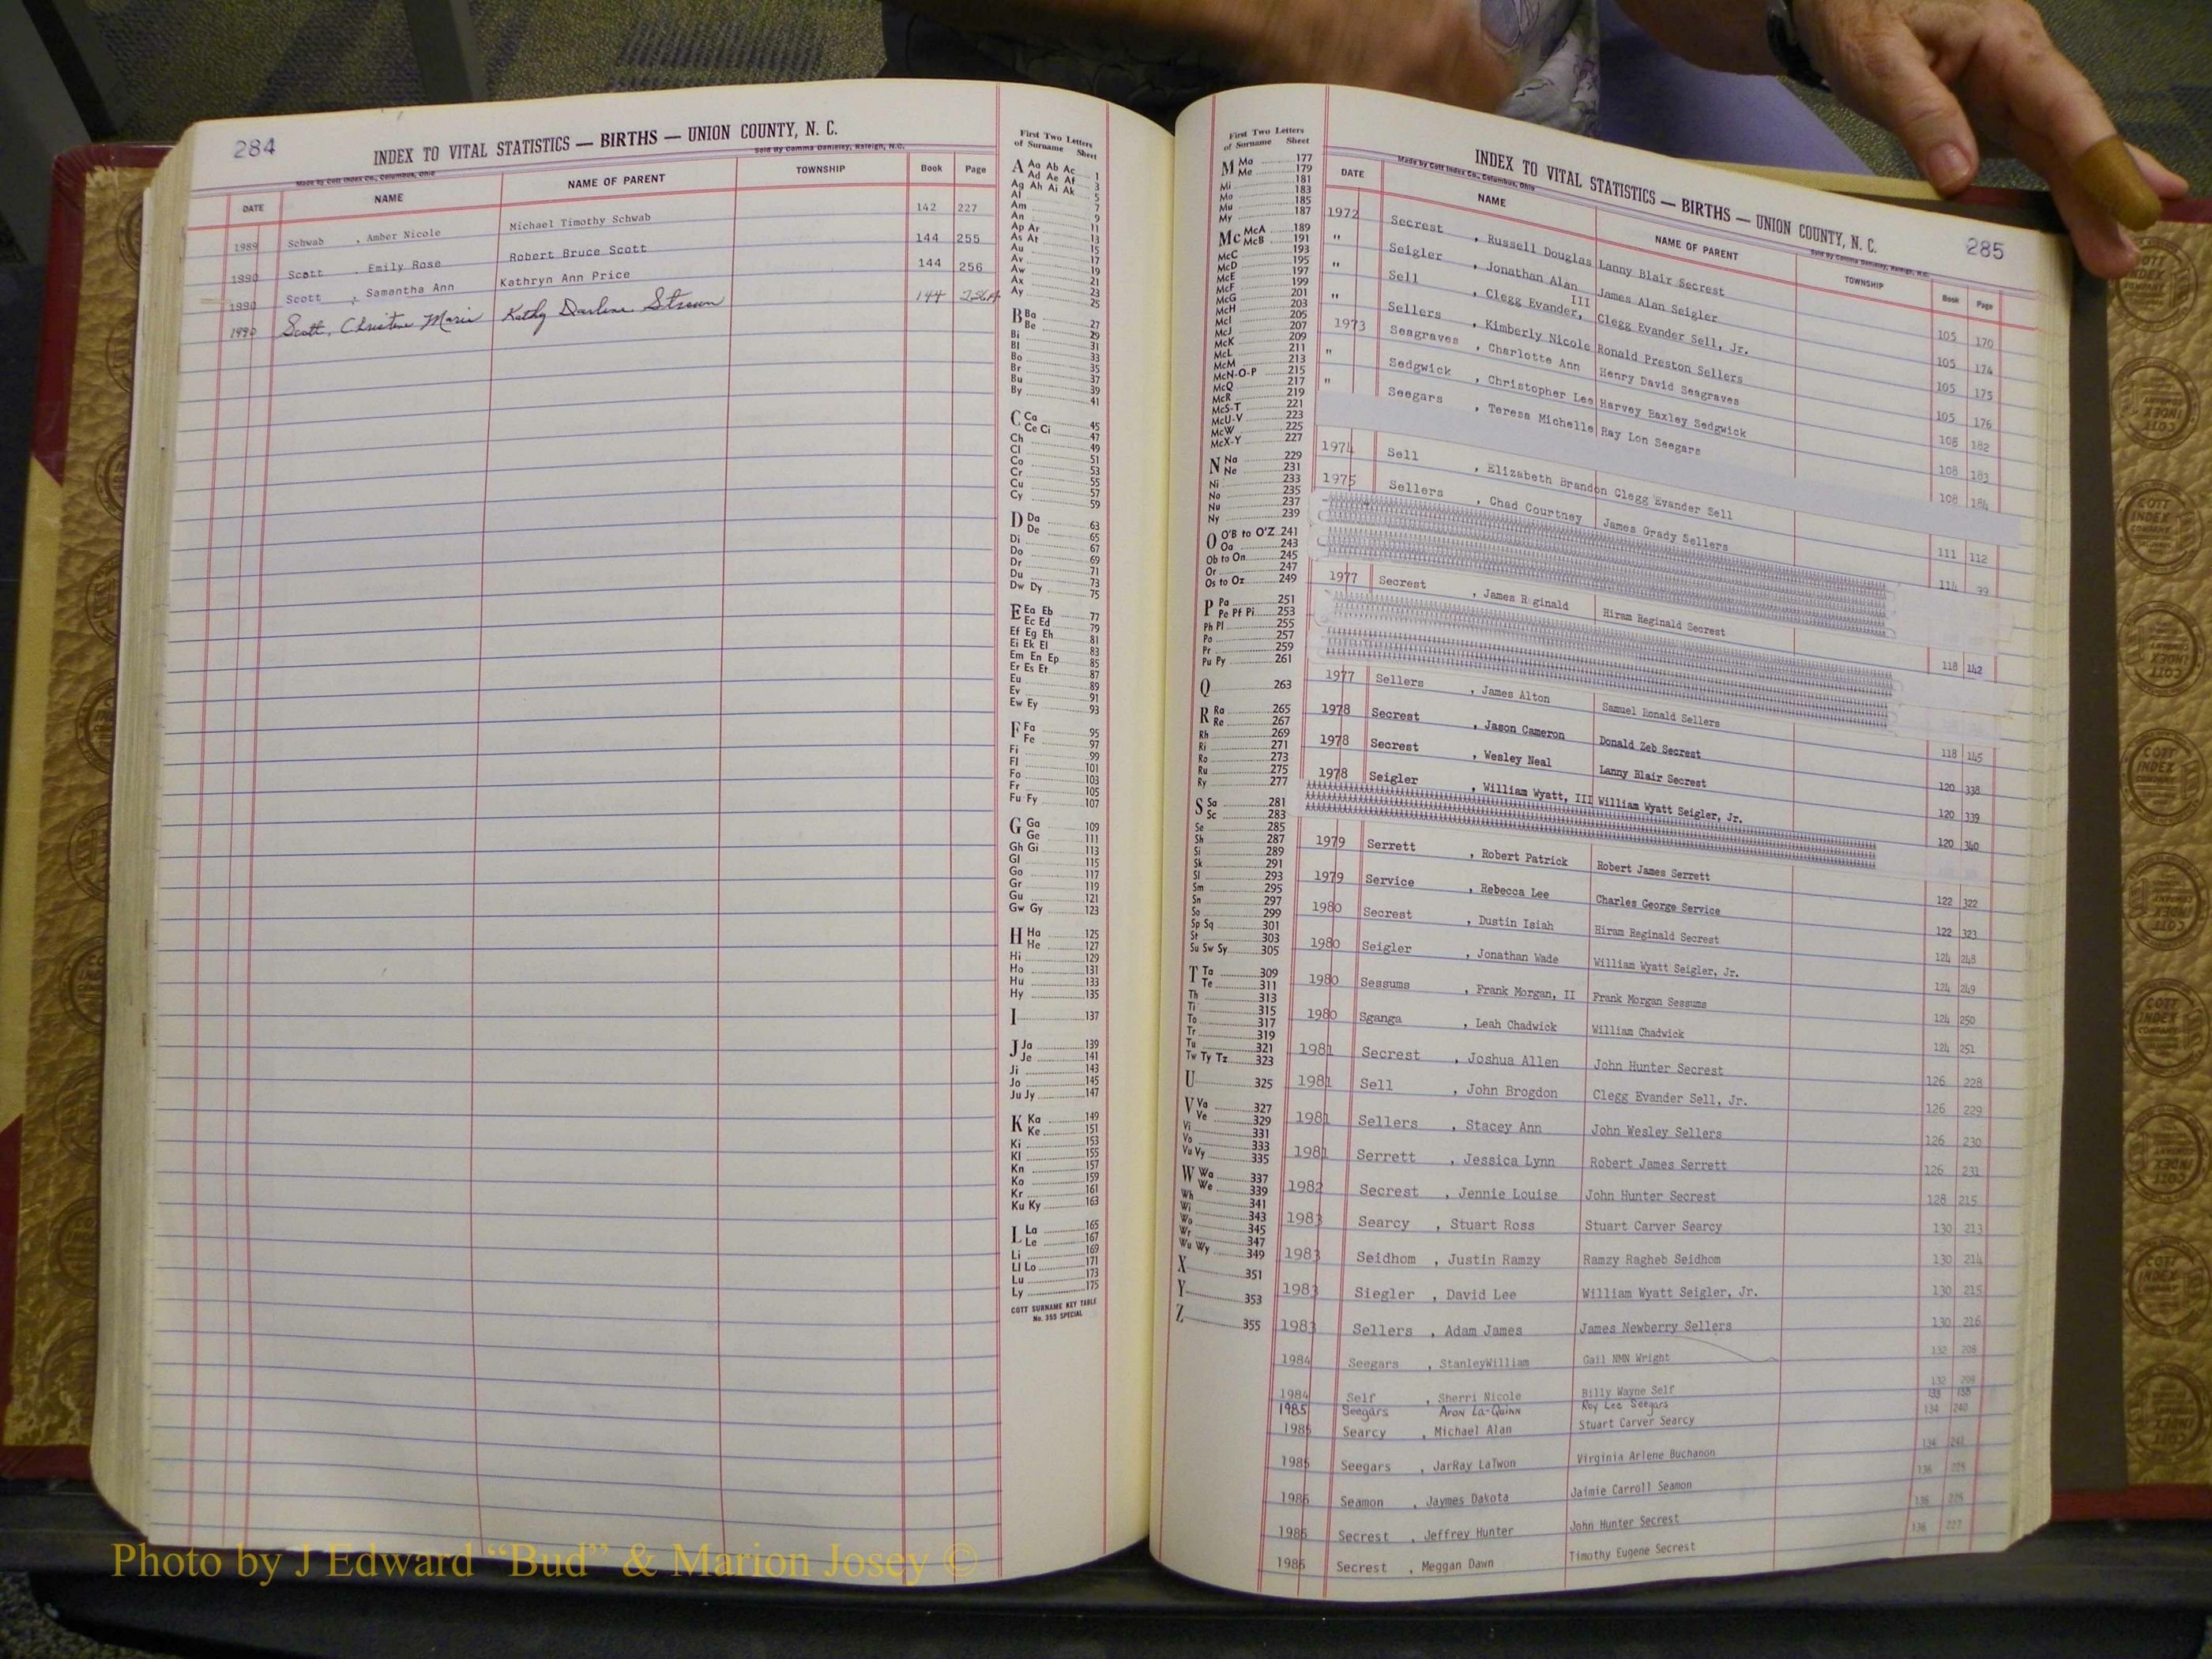 284
INDEX TO VITAL STATISTICS — BIRTHS — UNION COUNTY, N. C.
Made by Cott Index Co., Columbus, Ohio
Sold by Comma Danieley, Raleigh, N.C.
DATE NAME NAME OF PARENT TOWNSHIP Book Page
1989 Schwab , Amber Nicole Michael Timothy Schwab 142 227
1990 Scott , Emily Rose Robert Bruce Scott 144 255
1990 Scott , Samantha Ann Kathryn Ann Price 144 256
1990 Scott, Christine Marie Kathy Darlene 144 256A
First Two Letters
of Surname Sheet
A Aa Ab Ac 1
Ad Ae Af 3
Ag Ah Ai Ak 5
Al 7
Am 9
An 11
Ap Ar 13
As At 15
Au 17
Av 19
Aw 21
Ax 23
Ay 25
B Ba 27
Be 29
Bi 31
Bl 33
Bo 35
Br 37
Bu 39
By 41
C Ca 45
Ce Ci 47
Ch 49
Cl 51
Co 53
Cr 55
Cu 57
Cy 59
D Da 63
De 65
Di 67
Do 69
Dr 71
Du 73
Dw Dy 75
E Ea Eb 77
Ec Ed 79
Ef Eg Eh 81
Ei Ek El 83
Em En Ep 85
Er Es Et 87
Eu 89
Ev 91
Ew Ey 93
F Fa 95
Fe 97
Fi 99
Fl 101
Fo 103
Fr 105
Fu Fy 107
G Ga 109
Ge 111
Gh Gi 113
Gl 115
Go 117
Gr 119
Gu 121
Gw Gy 123
H Ha 125
He 127
Hi 129
Ho 131
Hu 133
Hy 135
I 137
J Ja 139
Je 141
Ji 143
Jo 145
Ju Jy 147
K Ka 149
Ke 151
Ki 153
Kl 155
Kn 157
Ko 159
Kr 161
Ku Ky 163
L La 165
Le 167
Li 169
Ll Lo 171
Lu 173
Ly 175
COTT SURNAME KEY TABLE
No. 355 SPECIAL
First Two Letters
of Surname Sheet
M Ma 177
Me 179
Mi 181
Mo 183
Mu 185
My 187
Mc McA 189
McB 191
McC 193
McD 195
McE 197
McF 199
McG 201
McH 203
McI 205
McJ 207
McK 209
McL 211
McM 213
McN-O-P 215
McQ 217
McR 219
McS-T 221
McU-V 223
McW 225
McX-Y 227
N Na 229
Ne 231
Ni 233
No 235
Nu 237
Ny 239
O O'B to O'Z 241
Oa 243
Ob to On 245
Or 247
Os to Oz 249
P Pa 251
Pe Pf Pi 253
Ph Pl 255
Po 257
Pr 259
Pu Py 261
Q 263
R Ra 265
Re 267
Rh 269
Ri 271
Ro 273
Ru 275
Ry 277
S Sa 281
Sc 283
Se 285
Sh 287
Si 289
Sk 291
Sl 293
Sm 295
Sn 297
So 299
Sp Sq 301
St 303
Su Sw Sy 305
T Ta 309
Te 311
Th 313
Ti 315
To 317
Tr 319
Tu 321
Tw Ty Tz 323
U 325
V Va 327
Ve 329
Vi 331
Vo 333
Vu Vy 335
W Wa 337
We 339
Wh 341
Wi 343
Wo 345
Wr 347
Wu Wy 349
X 351
Y 353
Z 355
285
INDEX TO VITAL STATISTICS — BIRTHS — UNION COUNTY, N. C.
Made by Cott Index Co., Columbus, Ohio
Sold by Comma Danieley, Raleigh, N.C.
DATE NAME NAME OF PARENT TOWNSHIP Book Page
1972 Secrest , Russell Douglas Lanny Blair Secrest 105 170
" Seigler , Jonathan Alan James Alan Seigler 105 174
" Sell , Clegg Evander, III Clegg Evander Sell, Jr. 105 175
" Sellers , Kimberly Nicole Ronald Preston Sellers 105 176
1973 Seagraves , Charlotte Ann Henry David Seagraves 108 182
" Sedgwick , Christopher Lee Harvey Baxley Sedgwick 108 183
" Seegars , Teresa Michelle Ray Lon Seegars 108 184
1974 Sell , Elizabeth Brandon Clegg Evander Sell 111 112
1975 Sellers , Chad Courtney James Grady Sellers 114 99
1977 Secrest , James R ginald Hiram Reginald Secrest 118 142
1977 Sellers , James Alton Samuel Ronald Sellers 118 145
1978 Secrest , Jason Cameron Donald Zeb Secrest 120 338
1978 Secrest , Wesley Neal Lanny Blair Secrest 120 339
1978 Seigler , William Wyatt, III William Wyatt Seigler, Jr. 120 340
1979 Serrett , Robert Patrick Robert James Serrett 122 322
1979 Service , Rebecca Lee Charles George Service 122 323
1980 Secrest , Dustin Isiah Hiram Reginald Secrest 124 248
1980 Seigler , Jonathan Wade William Wyatt Seigler, Jr. 124 249
1980 Sessums , Frank Morgan, II Frank Morgan Sessums 124 250
1980 Sganga , Leah Chadwick William Chadwick 124 251
1981 Secrest , Joshua Allen John Hunter Secrest 126 228
1981 Sell , John Brogdon Clegg Evander Sell, Jr. 126 229
1981 Sellers , Stacey Ann John Wesley Sellers 126 230
1981 Serrett , Jessica Lynn Robert James Serrett 126 231
1982 Secrest , Jennie Louise John Hunter Secrest 128 215
1983 Searcy , Stuart Ross Stuart Carver Searcy 130 213
1983 Seidhom , Justin Ramzy Ramzy Ragheb Seidhom 130 214
1983 Siegler , David Lee William Wyatt Seigler, Jr. 130 215
1983 Sellers , Adam James James Newberry Sellers 130 216
1984 Seegars , StanleyWilliam Gail NMN Wright 132 208
1984 Self , Sherri Nicole Billy Wayne Self 132 209
1985 Seegars Aron La-Quinn Roy Lee Seegars 133 138
1985 Searcy , Michael Alan Stuart Carver Searcy 134 240
1985 Seegars , JarRay LaTwon Virginia Arlene Buchanon 134 241
1986 Seamon , Jaymes Dakota Jaimie Carroll Seamon 136 225
1986 Secrest , Jeffrey Hunter John Hunter Secrest 136 226
1986 Secrest , Meggan Dawn Timothy Eugene Secrest 136 227
Photo by J Edward “Bud” & Marion Josey ©